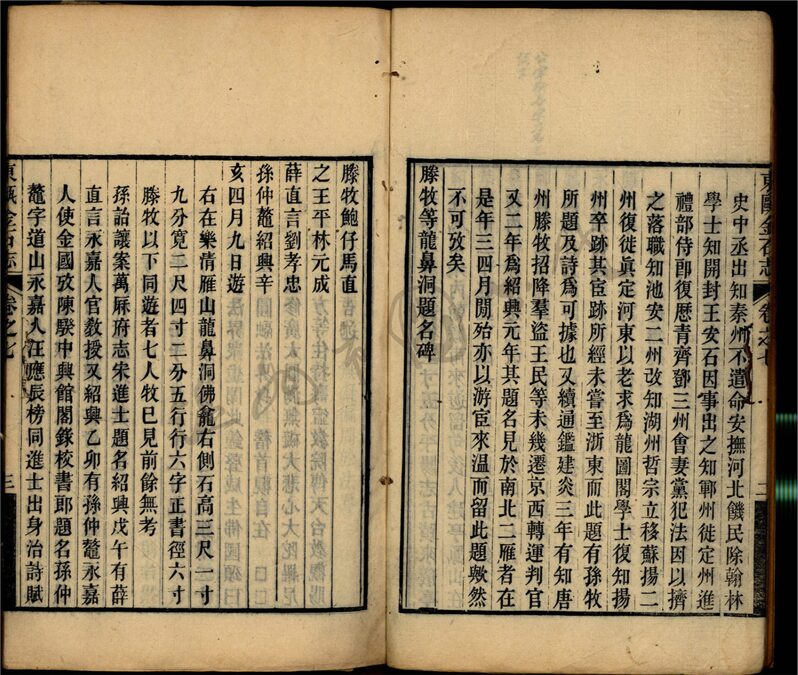 東甌金石志 卷之七 二
史中丞出知秦州不遣命安撫河北饑民除翰林
學士知開封王安石因事出之知鄆州徙定州進
禮部侍郎復歷青齊鄧三州會妻黨犯法因以擠
之落職知池安二州改知湖州哲宗立移蘇揚二
州復徙眞定河東以老求爲龍圖閣學士復知揚
州卒跡其宦跡所經未嘗至浙東而此題有孫牧
所題及詩爲可據也又續通鑑建炎三年有知唐
州滕牧招降羣盜王民等未幾遷京西轉運判官
又二年爲紹興元年其題名見於南北二雁者在
是年三四月閒殆亦以游宦來溫而留此題歟然
不可攷矣
滕牧等龍鼻洞題名碑
滕牧鮑仔馬直
之王平林元成
薛直言劉孝忠
孫仲鼇紹興辛
亥四月九日遊
右在樂清雁山龍鼻洞佛龕右側石高三尺一寸
九分寬二尺四寸二分五行行六字正書徑六寸
滕牧以下同遊者七人牧已見前餘無考
孫詒讓案萬厤府志宋進士題名紹興戊午有薛
直言永嘉人官敎授又紹興乙卯有孫仲鼇永嘉
人使金國攷陳騤中興館閣錄校書郎題名孫仲
鼇字道山永嘉人汪應辰榜同進士出身治詩賦
東甌金石志 卷之七 三